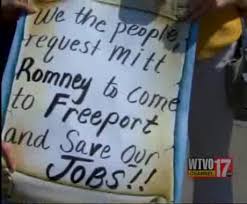 We the people,
request Mitt
Romney to come
to Freeport
and Save Our
JOBS!!
WTVO
CHANNEL
17